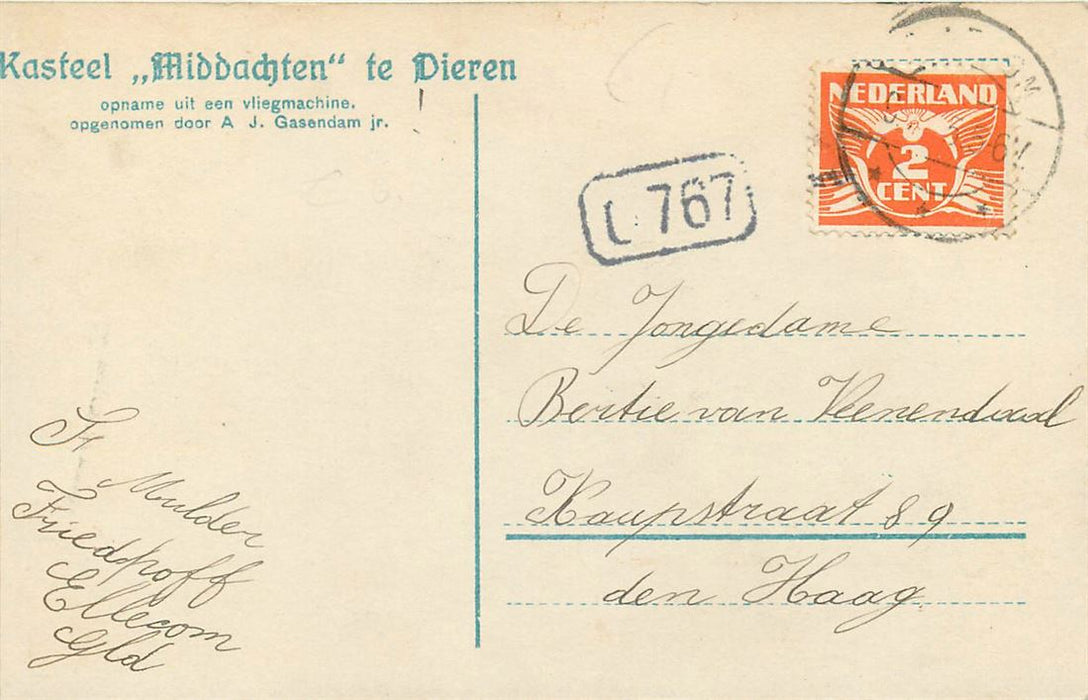 Kasteel „Middachten“ te Dieren
opname uit een vliegmachine.
opgenomen door A J. Gasendam jr.
NEDERLAND
2
CENT
L 767
De Jongedame
Bertie van Veenendaal
Kaupstraat 89
den Haag
Fr Mulder
Friedhoff
Ellecom
Gld